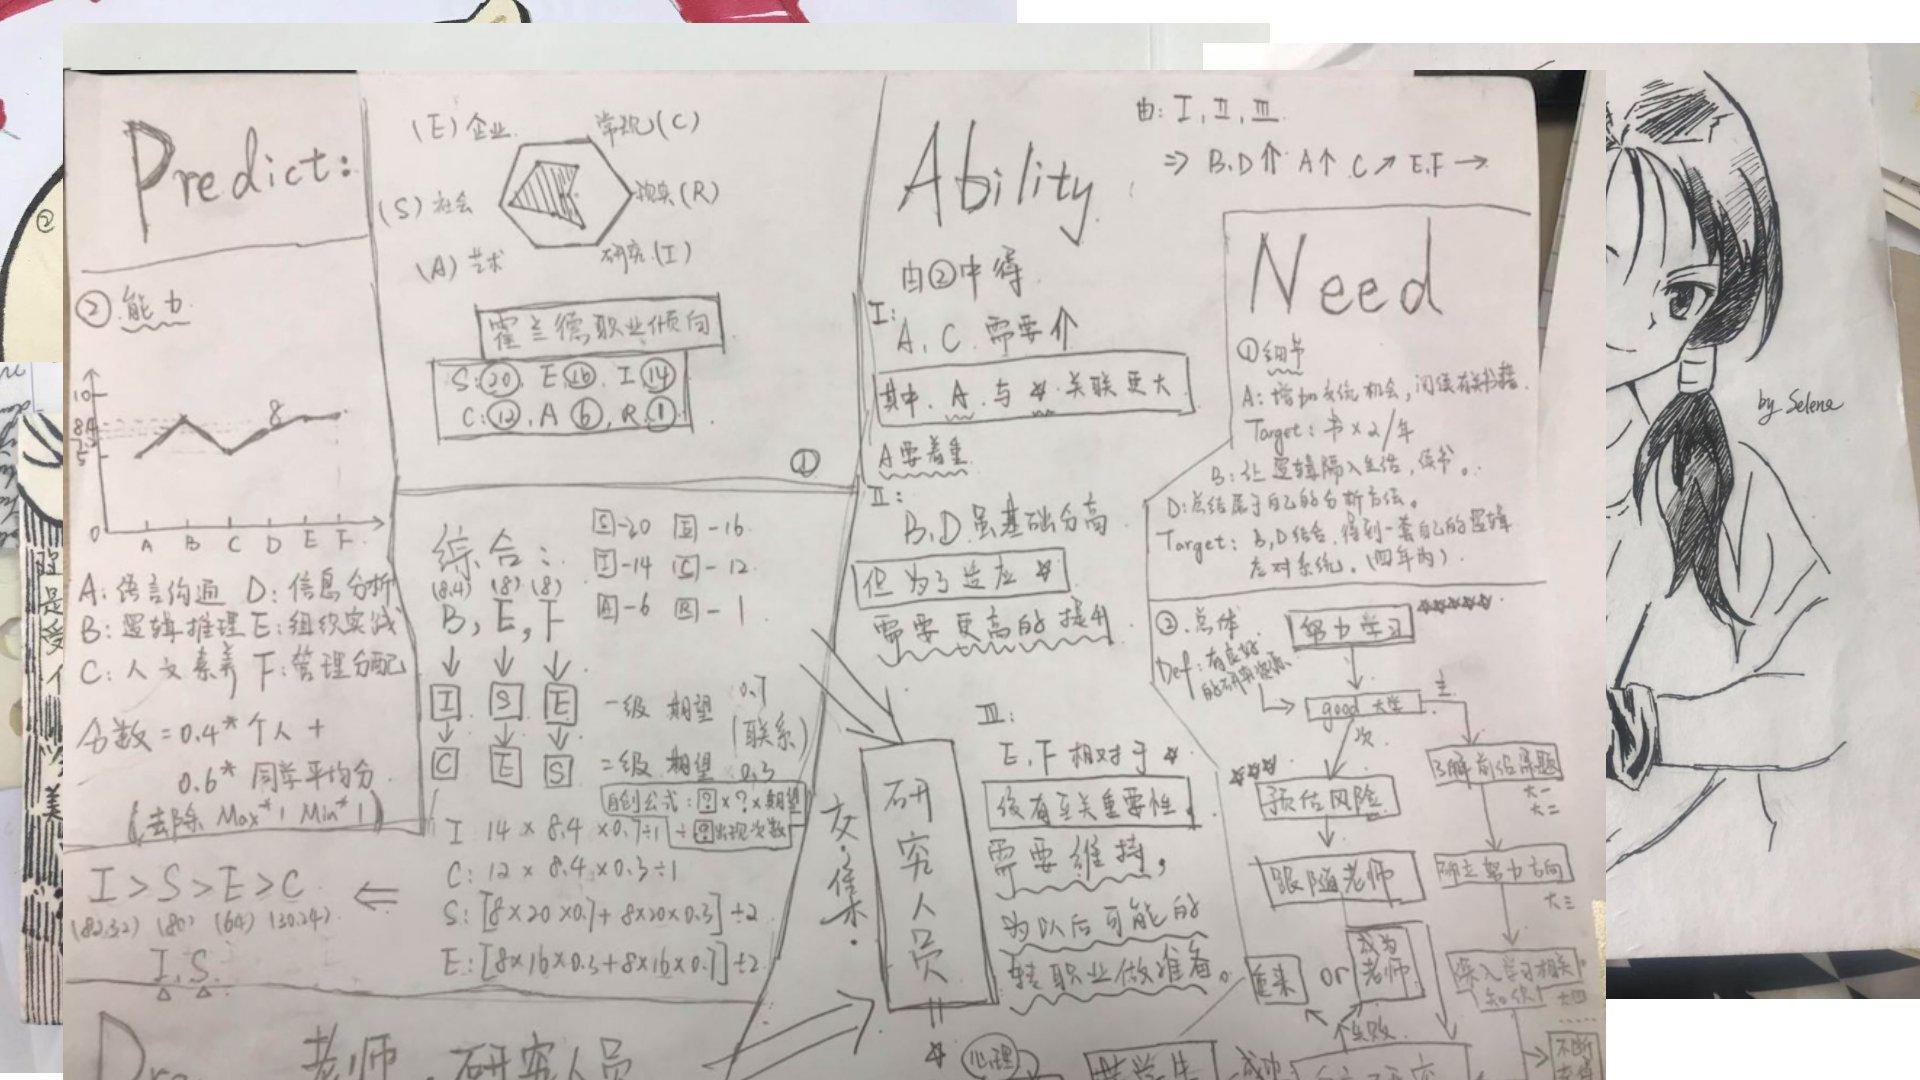 Predict:
②能力
10
8.4
5
0
8
A B C D E F
A:语言沟通 D:信息分析
B:逻辑推理 E:组织实践
C:人文素养 F:管理分配
分数=0.4*个人+
0.6*同学平均分
(去除Max*1 Min*1)
I>S>E>C
(82.32) (80) (64) (30.24)
I,S
(E)企业
常规(C)
(S)社会
现实(R)
(A)艺术
研究(I)
霍兰德职业倾向
S:20. E 16. I 14
C:12, A 6, R 1
①
综合:
S-20 E-16
I-14 C-12
A-6 R-1
(8.4) (8) (8)
B,E,F
I S E 一级期望 0.7
(联系)
C E S 二级期望 0.3
自创公式:?×?×期望
÷?出现次数
I 14×8.4×0.7÷1
C:12×8.4×0.3÷1
S:[8×20×0.7+8×20×0.3]÷2
E:[8×16×0.3+8×16×0.7]÷2
老师,研究人员
Ability
由②中得
I:
A,C.需要↑
其中,A.与☆.关联更大
A要着重
II:
B,D.虽基础分高
但为了适应☆
需要更高的提升
III:
E,F相对于☆
没有至关重要性,
需要维持,
为以后可能的
转职业做准备。
交集.
研究人员
=
☆
由:I,II,III
⇒ B.D⇑ A↑ C↗ E,F→
Need
①细节
A:增加交流机会,阅读有关书籍.
Target:书×2/年
B:让逻辑融入生活,读书。
D:总结属于自己的分析方法。
Target:B,D结合,得到一套自己的逻辑
应对系统。(四年内)
②.总体
Def:有良好
的研究资源
努力学习
☆☆☆☆☆
good大学
主
次
☆☆☆
预估风险
跟随老师
重来 or 成为老师
失败
了解前沿课题
大一
大二
确立努力方向
大三
深入学习相关知识
大四
不断
心理
成功
by Selene
②
是
受
美